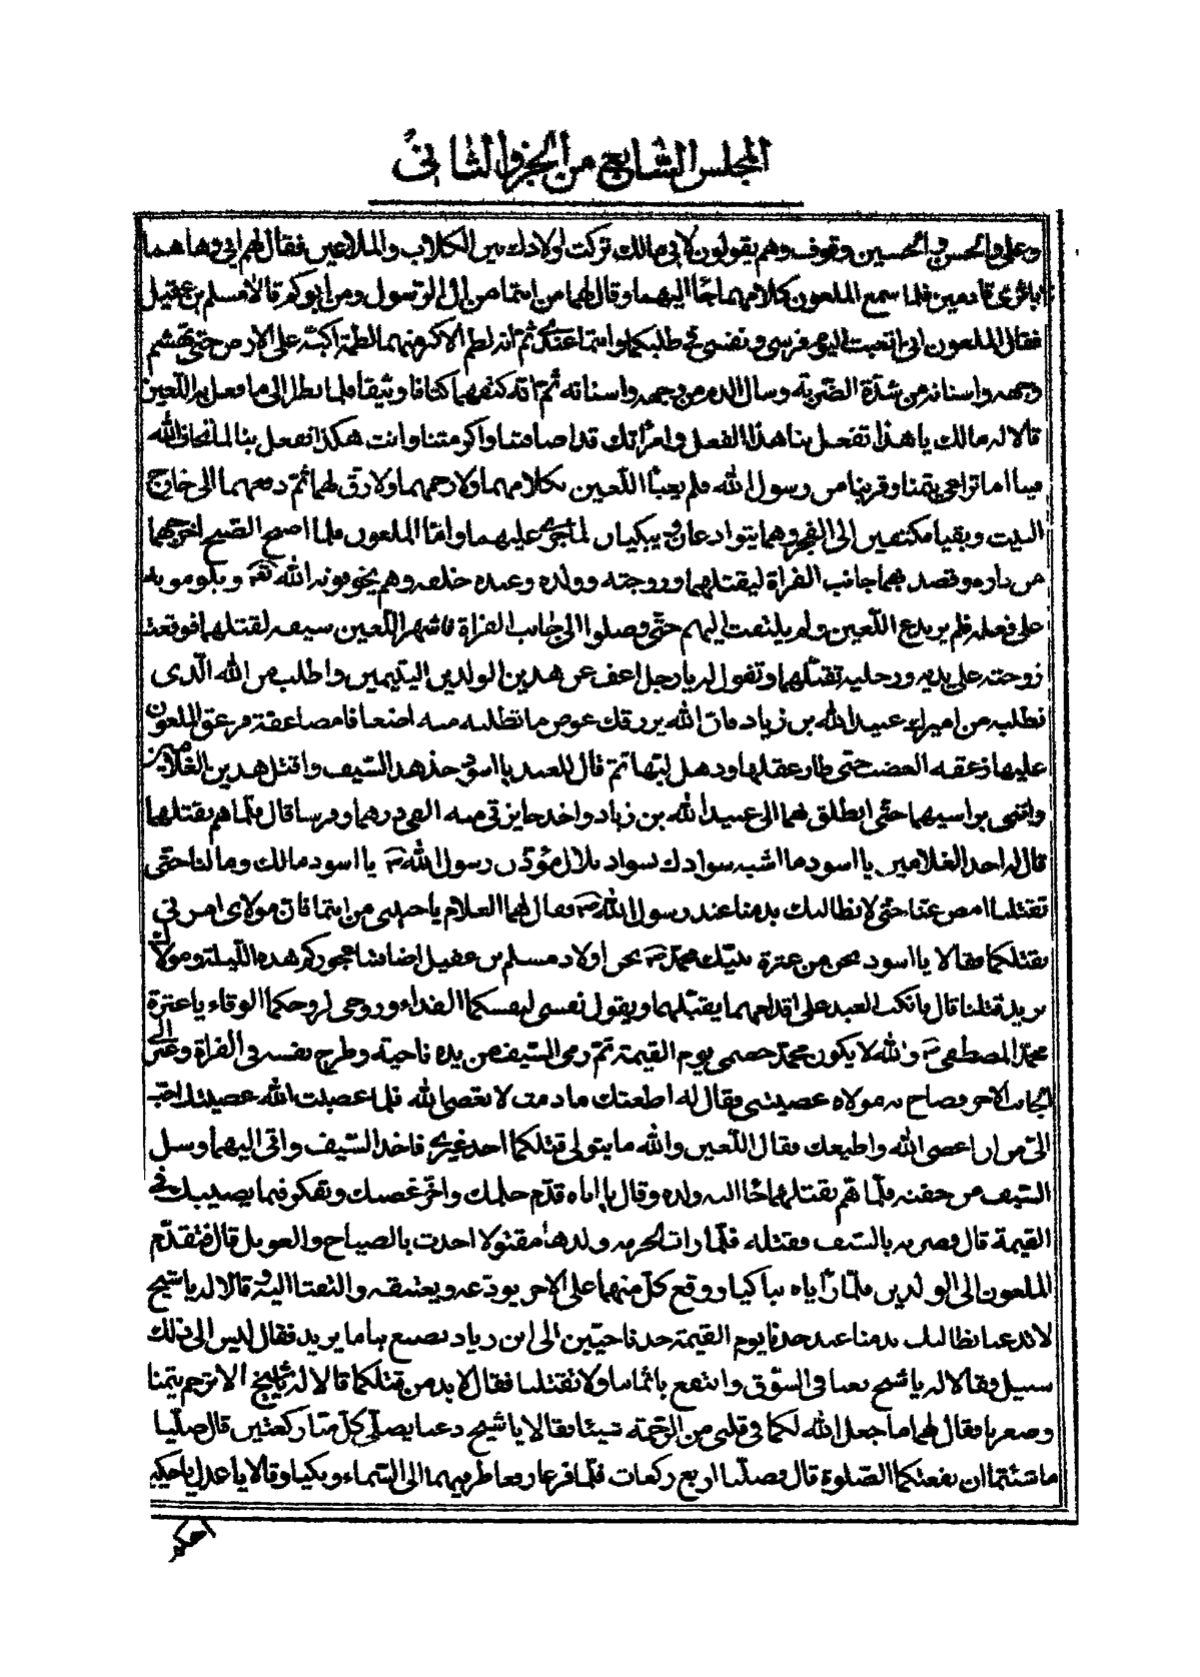 المجلس السابع من الجزو الثانى
وعلى والحسن والحسين وقوف وهم يقولون لابى مالك تركت اولادك بين الكلاب والملاعين فقال لهم ابى وهاهما
باثرى قادمين فلما سمع الملعون كلامهما جاء اليهما وقال لهما من انتما من ال الرسول ومن ابوكم قالا مسلم بن عقيل
فقال الملعون انى اتعبت اليوم فرسى ونفسى فى طلبكما وانتما عندى ثم انه لطم الاكبر منهما لطمة اكبه على الارض حتى تهشم
وجهه واسنانه من شدة الضربة وسال الدم من وجهه واسنانه ثم انه كتفهما كتافا وثيقا فلما نظرا الى ما فعل بهم اللعين
قالا له مالك يا هذا تفعل بنا هذا الفعل وامراتك قد اضافتنا واكرمتنا وانت هكذا تفعل بنا اما تخاف الله
فينا اما تراعى يتمنا وقربنا من رسول الله فلم يعبأ اللعين بكلامهما ولا رحمهما ولا رق لهما ثم دفعهما الى خارج
البيت وبقيا مكتفين الى الفجر وهما يتوادعان ويبكيان لما جرى عليهما واما الملعون فلما اصبح الصبح اخرجهما
من داره وقصد بهما جانب الفراة ليقتلهما وزوجته وولده وعبده خلفه وهم يخوفونه الله تعه ويلومونه
على فعله فلم يرتدع اللعين ولم يلتفت اليهم حتى وصلوا الى جانب الفراة فاشهر اللعين سيفه لقتلهما فوقعت
زوجته على يديه ورجليه تقبلهما وتقول له يا رجل اعف عن هذين الولدين اليتيمين واطلب من الله الذى
تطلبه من اميرك عبيد الله بن زياد فان الله يرزقك عوض ما تطلبه منه اضعافا مضاعفة فزعق الملعون
عليها زعقة الغضب حتى طار عقلها وذهل لبها ثم قال للعبد يا اسود خذ هذا السيف واقتل هذين الغلامين
واتنى براسيهما حتى انطلق بهما الى عبيد الله بن زياد واخذ جايزتى منه الفى درهما وفرسا قال فلما هم بقتلهما
قال له احد الغلامين يا اسود ما اشبه سوادك بسواد بلال مؤذن رسول الله ص يا اسود مالك ومالنا حتى
تقتلنا امض عنا حتى لا نطالبك بدمنا عند رسول الله ص فقال لهما الغلام يا حبيبى من انتما فان مولاى امرنى
بقتلكما فقالا يا اسود نحن من عترة نبيك محمد ص نحن اولاد مسلم بن عقيل اضافتنا عجوزكم هذه الليلة ومولاك
يريد قتلنا قال فانكب العبد على اقدامهما يقبلهما ويقول نفسى لنفسكما الفداء وروحى لروحكما الوقاء يا عترة
محمد المصطفى ص والله لا يكون محمد خصمى يوم القيمة ثم رمى السيف من يده ناحية وطرح نفسه فى الفراة وعبر الى
الجانب الاخر فصاح به مولاه عصيتنى فقال له اطعتك ما دمت لا تعصى الله فلما عصيت الله عصيتك احب
الى من ان اعصى الله واطيعك فقال اللعين والله ما يتولى قتلكما احد غيرى فاخذ السيف واتى اليهما وسل
السيف من جفنه فلما هم بقتلهما جاء اليه ولده وقال يا اباه قدم حلمك واخر غضبك وتفكر فيما يصيبك فى
القيمة قال فضربه بالسيف فقتله فلما رات الحرمه ولدها مقتولا اخذت بالصياح والعويل قال فتقدم
الملعون الى الولدين فلما راياه تباكيا ووقع كل منهما على الاخر يودعه ويعتنقه والتفتا اليه وقالا له يا شيخ
لا تدعنا نطالبك بدمنا عند جدنا يوم القيمة خذنا حيين الى ابن زياد يصنع بنا ما يريد فقال ليس الى ذلك
سبيل فقالا له يا شيخ بعنا فى السوق وانتفع باثماننا ولا تقتلنا فقال لا بد من قتلكما قالا له يا شيخ الا ترحم يتمنا
وصغرنا فقال لهما ما جعل الله لكما فى قلبى من الرحمة شيئا فقالا يا شيخ دعنا يصلى كل منا ركعتين قال صليا
ما شئتما ان نفعتكما الصلوة قال فصليا اربع ركعات فلما فرغا رفعا طرفيهما الى السماء وبكيا وقالا يا عدل يا حكيم